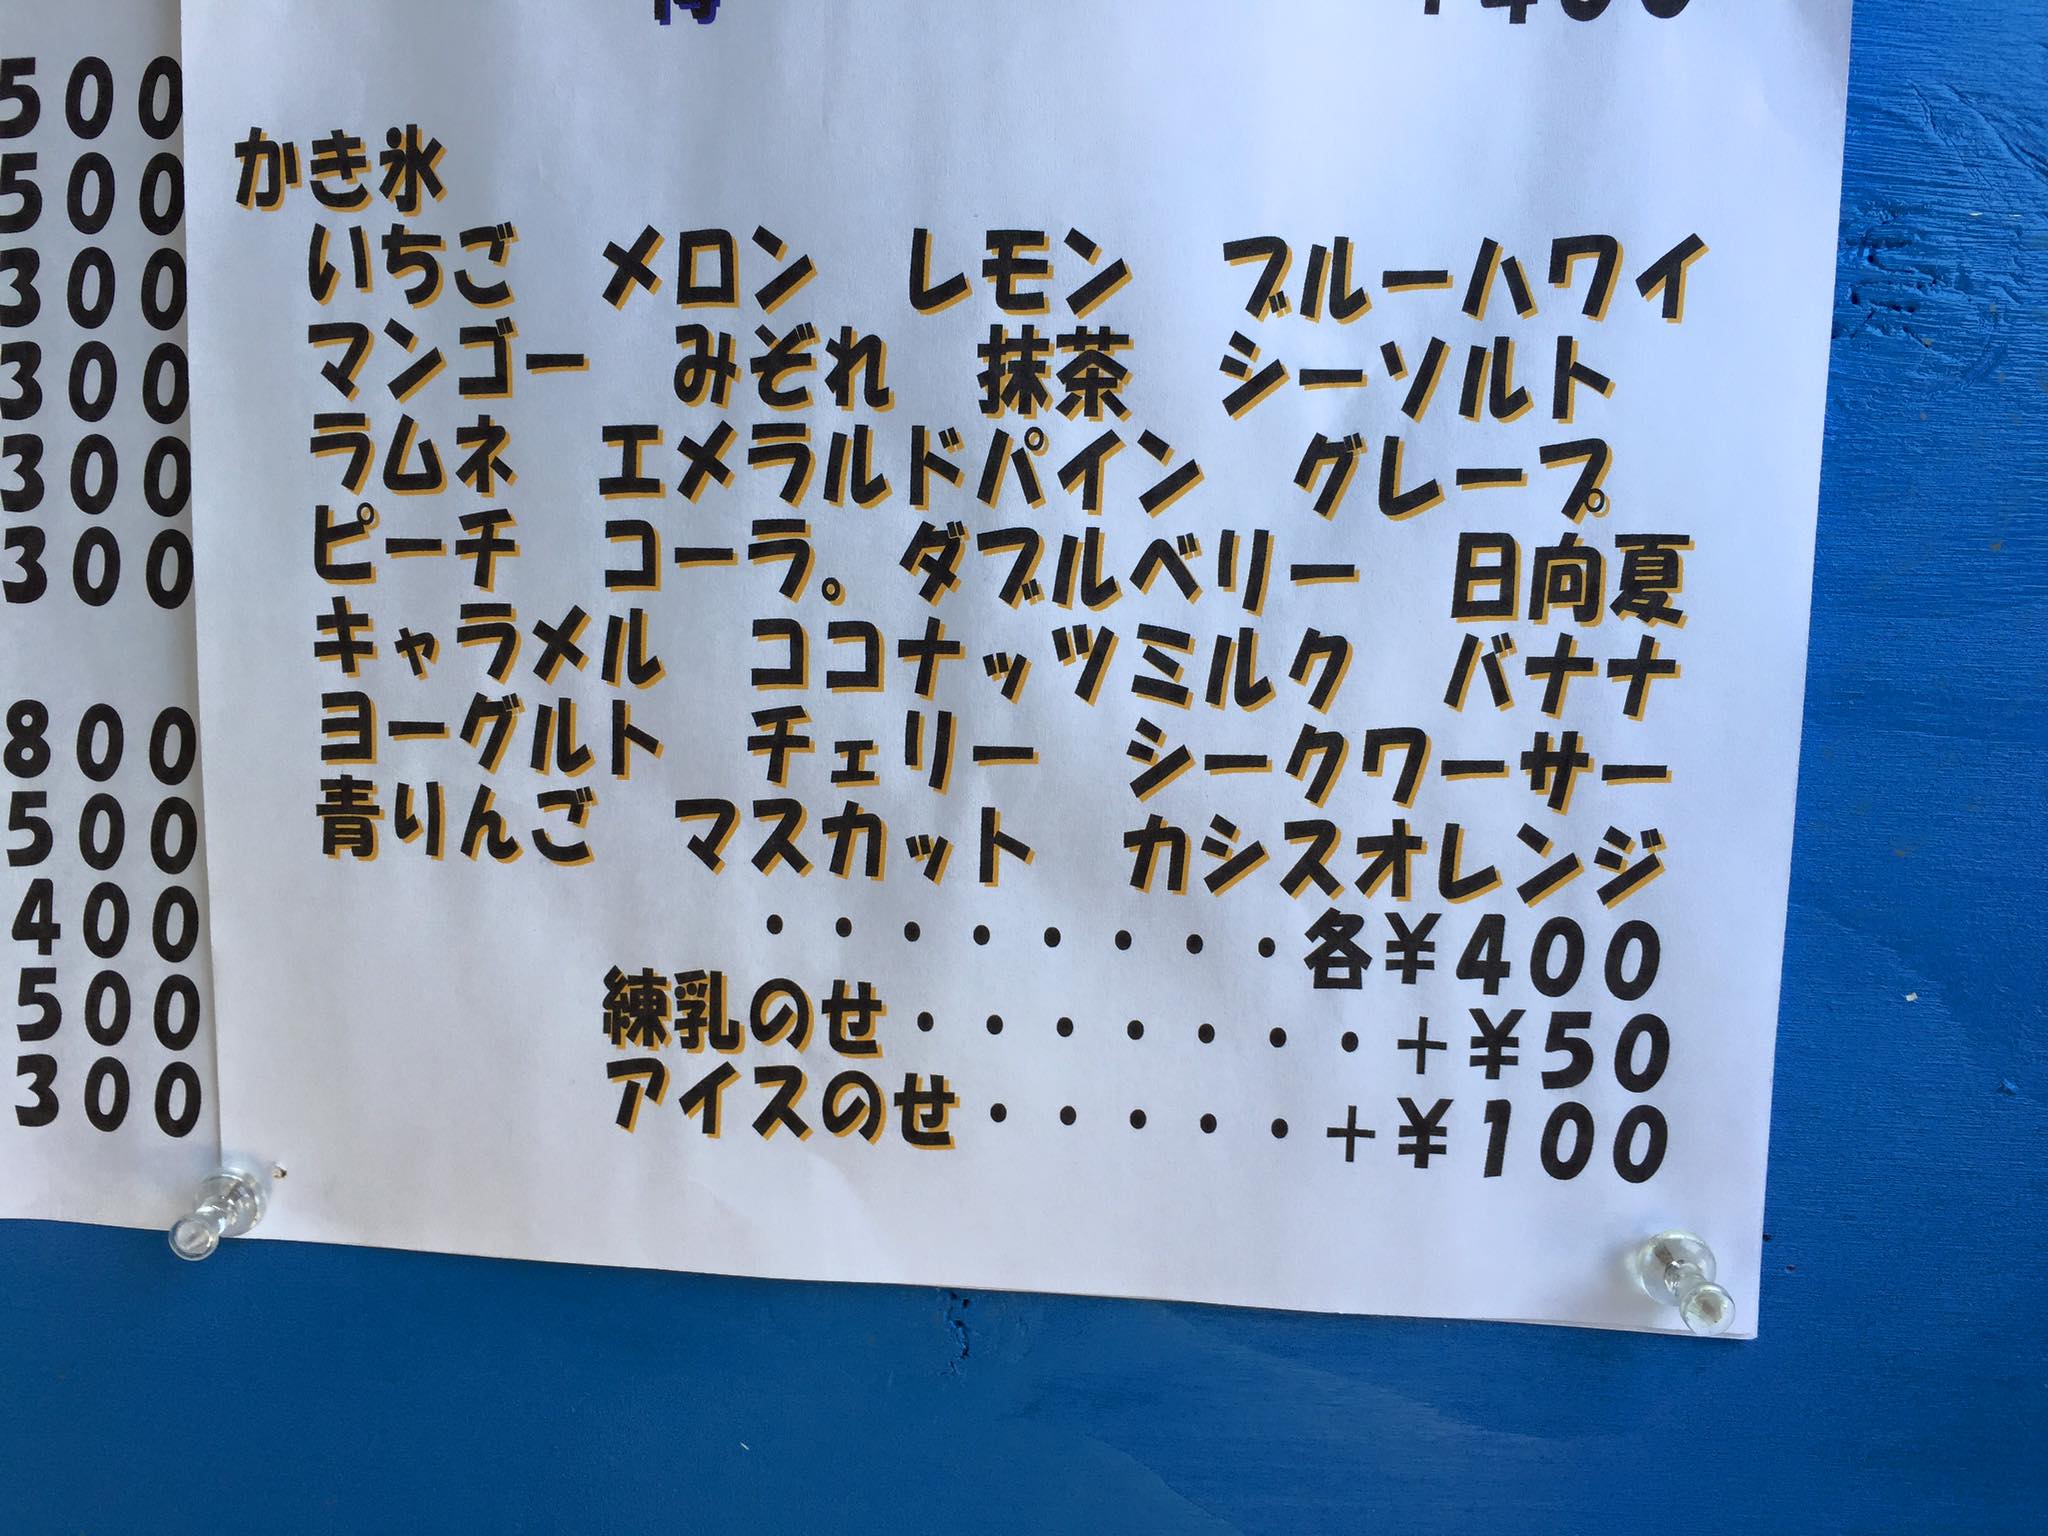 500
500
300
300
300
300
800
500
400
500
300
かき氷
いちご メロン レモン ブルーハワイ
マンゴー みぞれ 抹茶 シーソルト
ラムネ エメラルドパイン グレープ
ピーチ コーラ。ダブルベリー 日向夏
キャラメル ココナッツミルク バナナ
ヨーグルト チェリー シークワーサー
青りんご マスカット カシスオレンジ
・・・・・・・・各¥400
練乳のせ・・・・・・・+¥50
アイスのせ・・・・・+¥100